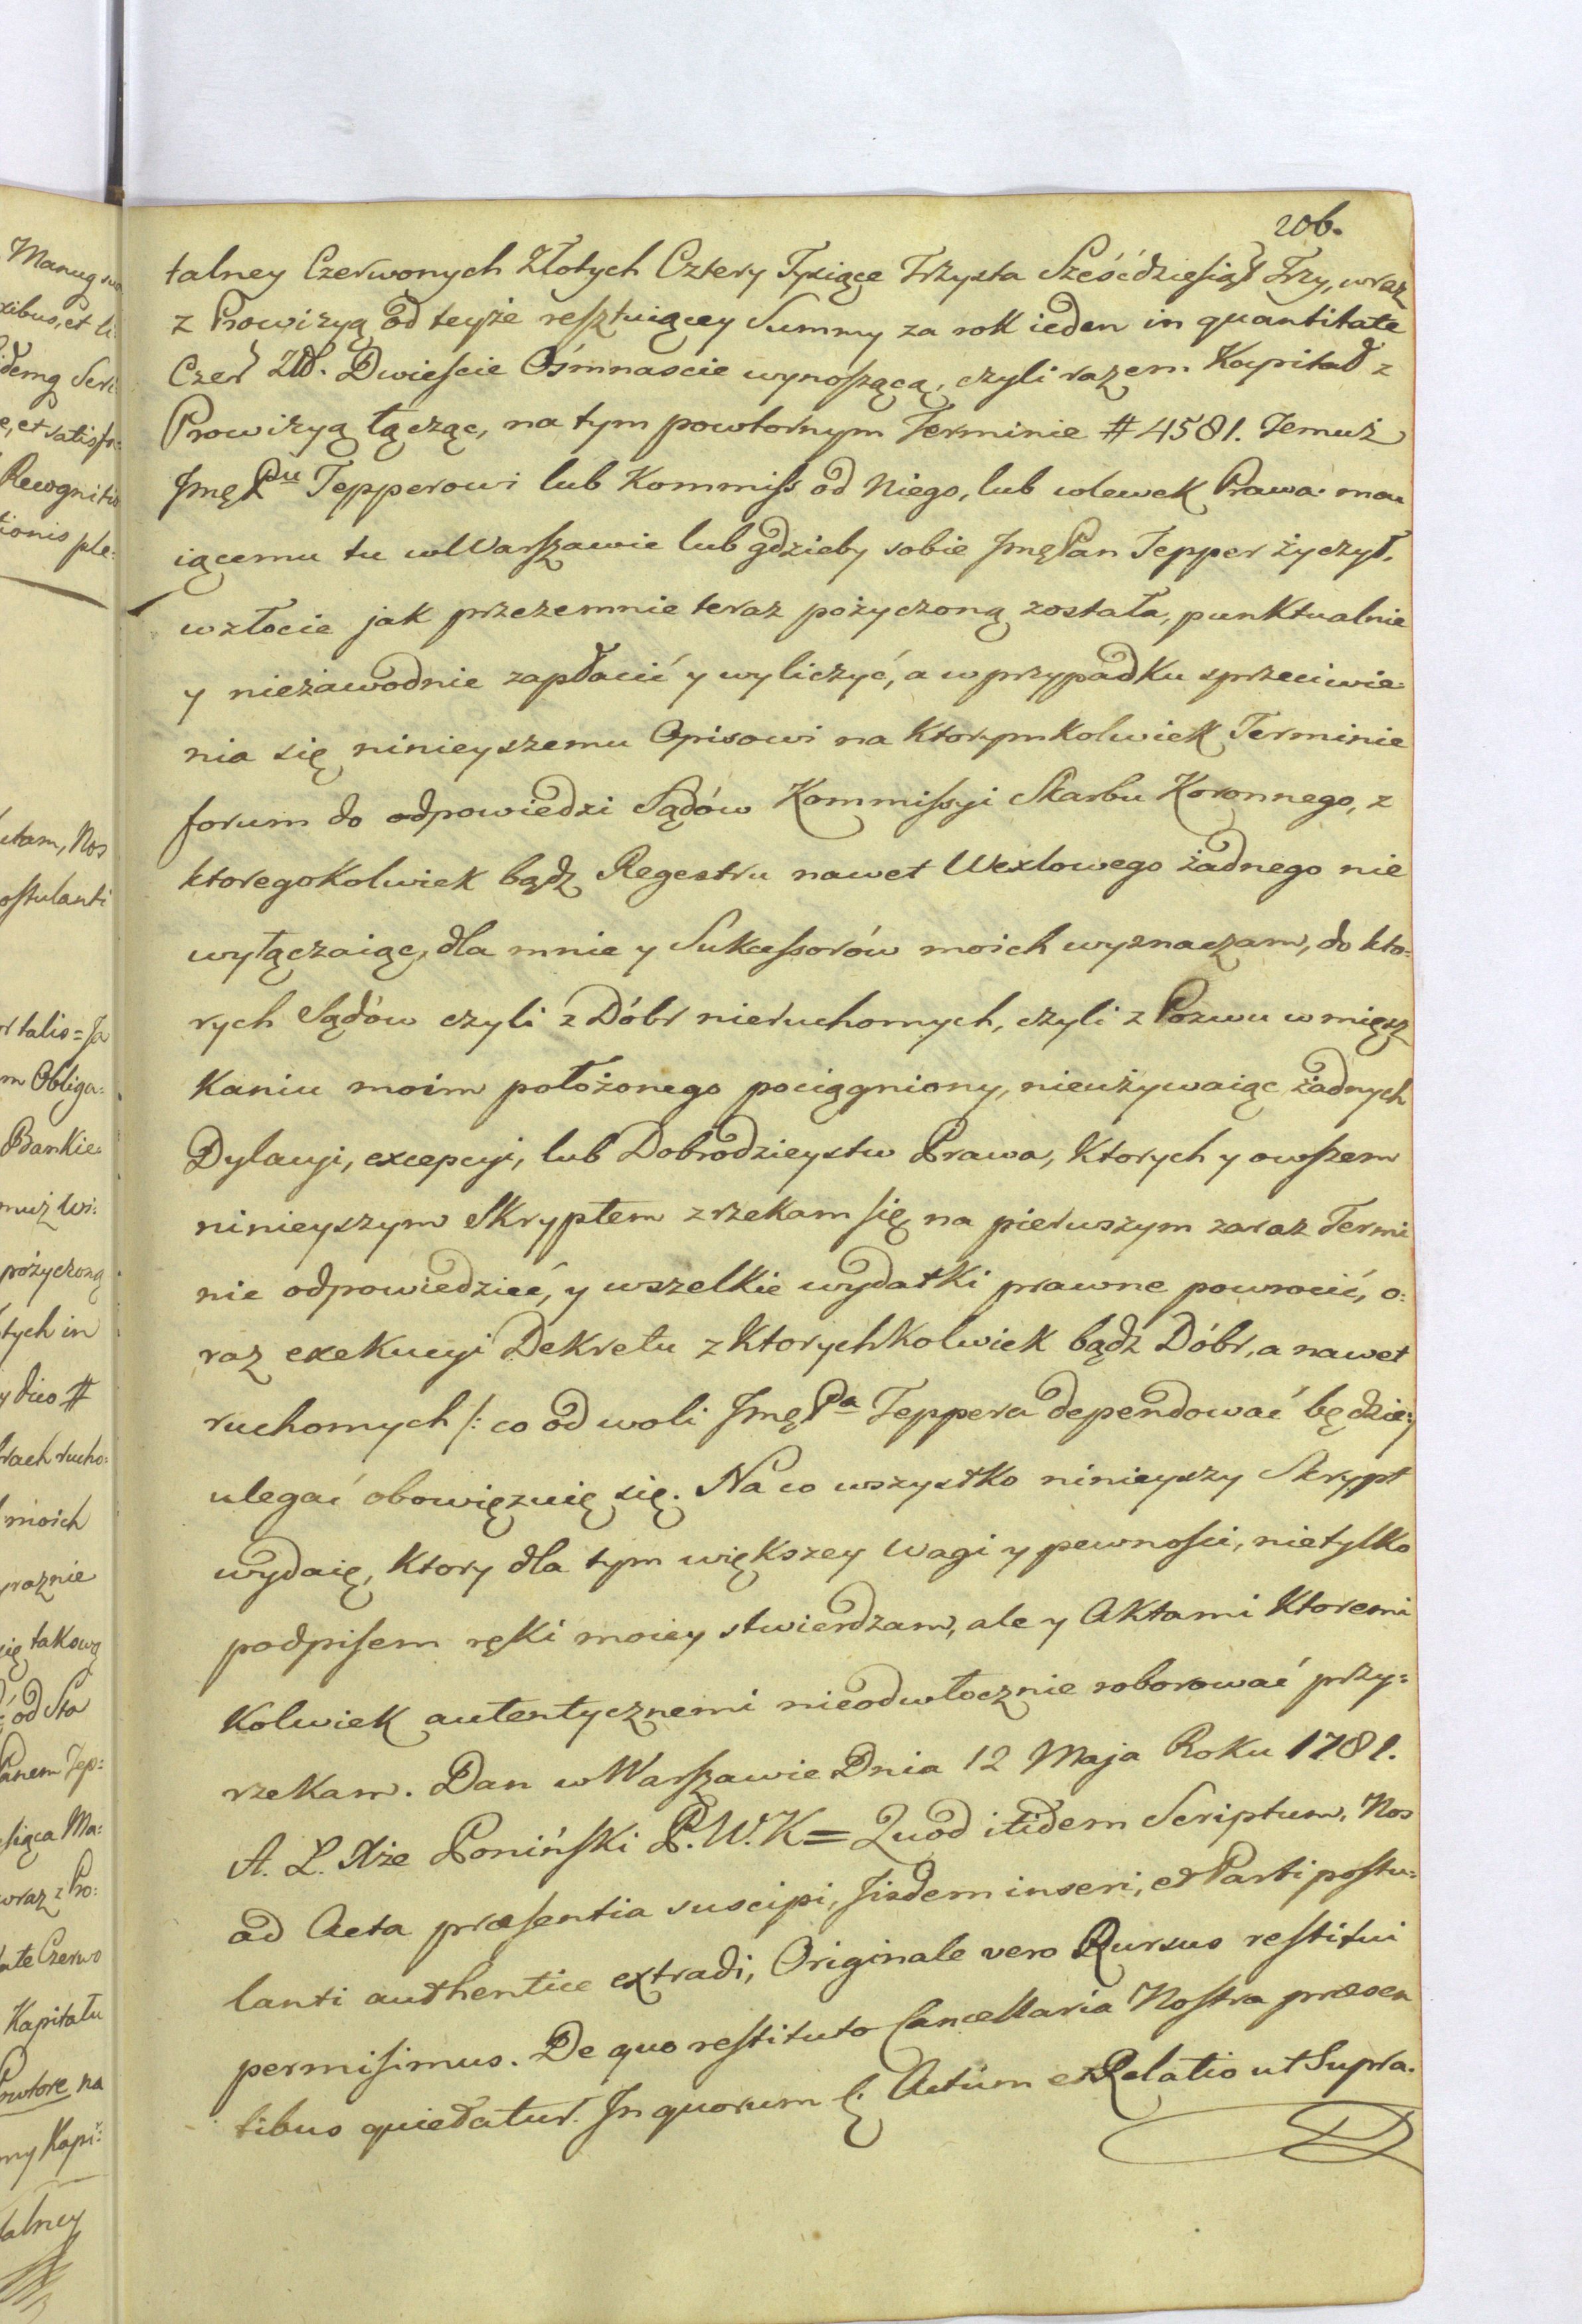 206.
talney Czerwonych Złotych Cztery Tysiące Trzysta Sześćdziesiąt Trzy, wraz
z Prowizyą od teyże resztuiącey Summy za rok ieden in quantitate
Czer Zł. Dwieście Ośmnascie wynoszącą, czyli razem Kapitał z
Prowizyą łącząc, na tym powtornym Terminie # 4581. Temuż
Jmę Pnu Tepperowi lub Kommiss od Niego, lub wlewek Prawa maią
iącemu tu w Warszawie lub gdzieby sobie Jmę Pan Tepper życzył,
w złocie jak przezemnie teraz pożyczoną została, punktualnie
y niezawodnie zapłacić y wyliczyć, a w przypadku sprzeciwie:
nia się ninieyszemu Opisowi na Ktorymkolwiek Terminie
forum do odpowiedzi Sądów Kommissyi Skarbu Koronnego, z
ktoregokolwiek bądz Regestru nawet Wexlowego żadnego nie
wyłączaiąc, dla mnie y Sukcessorów moich wyznaczam, do kto:
rych Sądów czyli z Dóbr nieruchomych, czyli z Pozwu w miesz
kaniu moim położonego pociągniony, nieużywaiąc żadnych
Dylacyi, excepcyi, lub Dobrodzieystw Prawa, Ktorych y owszem
ninieyszym Skryptem zrzekam się na pierwszym zaraz Termi
nie odpowiedzieć, y wszelkie wydatki prawne powrocić, o:
raz exekucyi Dekretu z Ktorychkolwiek bądz Dóbr, a nawet
ruchomych /: co od woli Jmę Pa Teppera dependować będzie :/
ulegać obowięzuię się. Na co wszystko ninieyszy Skrypt
wydaię, Ktory dla tym większey wagi y pewności, nietylko
podpisem ręki moiey stwierdzam, ale y Aktami Ktoremi
Kolwiek autentycznemi nieodwłocznie roborować przy:
rzekam. Dan w Warszawie Dnia 12 Maja Roku 1781.
A. L. Xże Poniński P.W.K = Quod itidem Scriptum, Nos
ad Acta præsentia suscipi, Jisdem inseri, et Parti postu:
lanti authentice extradi, Originale vero Rursus restitui
permisimus. De quo restituto Cancellaria Nostra præsen
tibus quietatur. In quorum f: Actum et Relatio ut Supra.